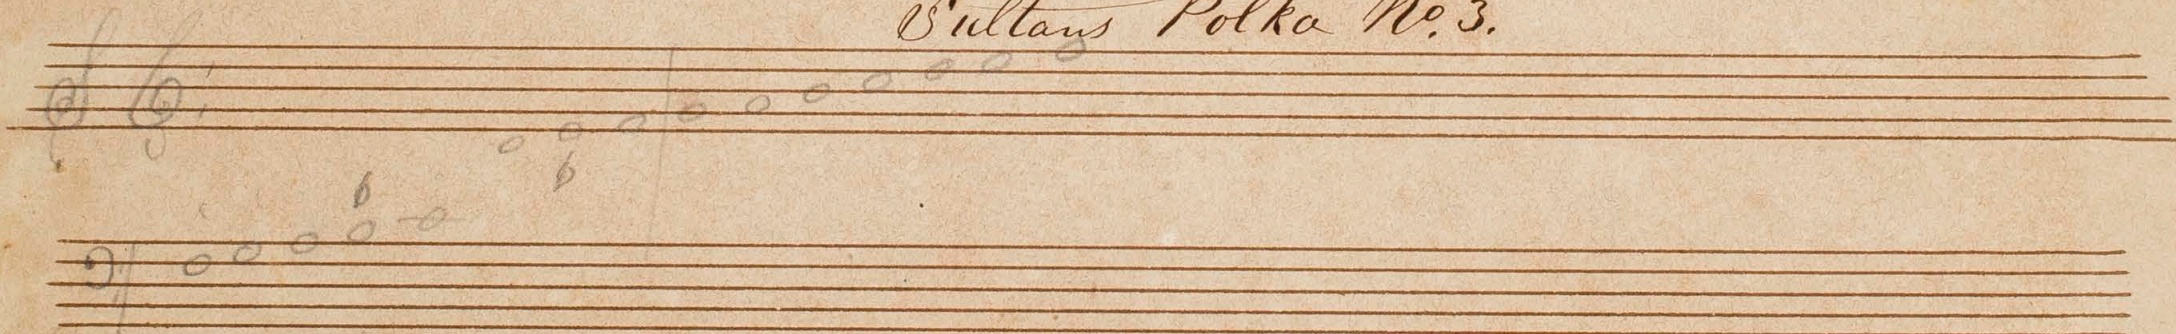 Sultans Polka No. 3.